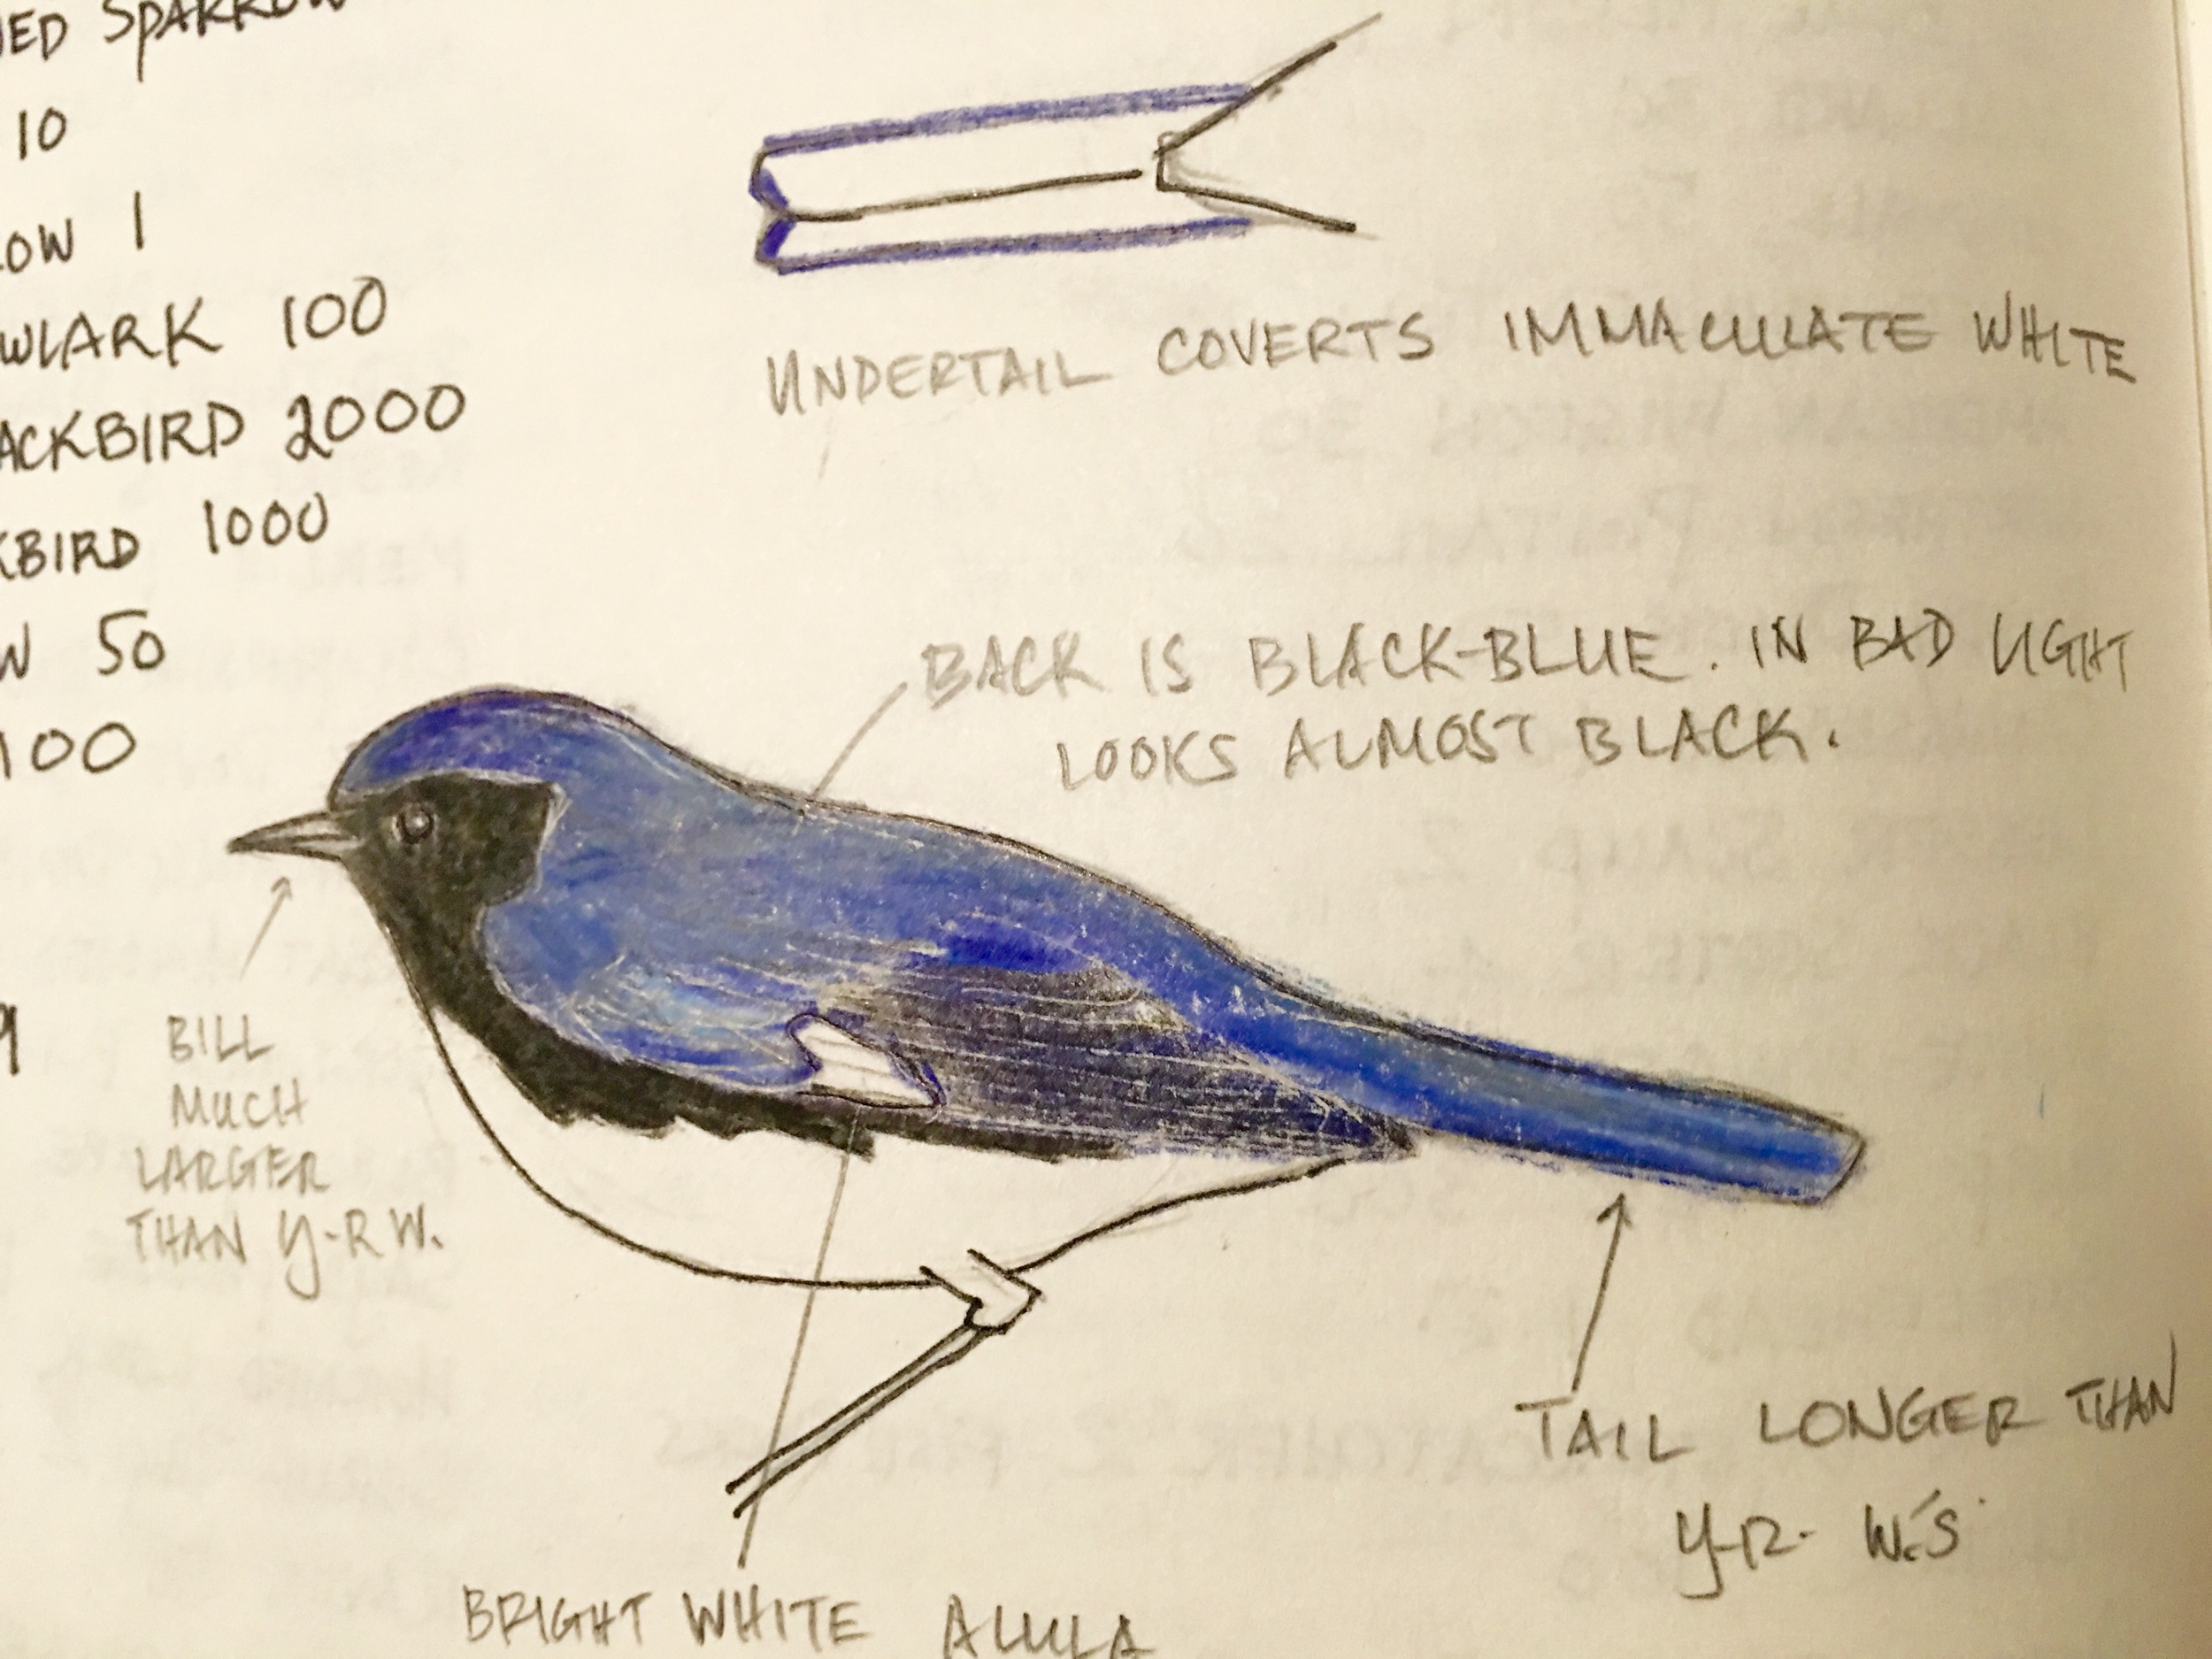 SPARROW
10
1
100
2000
1000
50
100
9
UNDERTAIL COVERTS IMMACULATE WHITE
BACK IS BLACK-BLUE. IN BAD LIGHT
LOOKS ALMOST BLACK.
BILL
MUCH
LARGER
THAN Y-R W.
TAIL LONGER THAN
Y-R- W.'S
BRIGHT WHITE ALULA